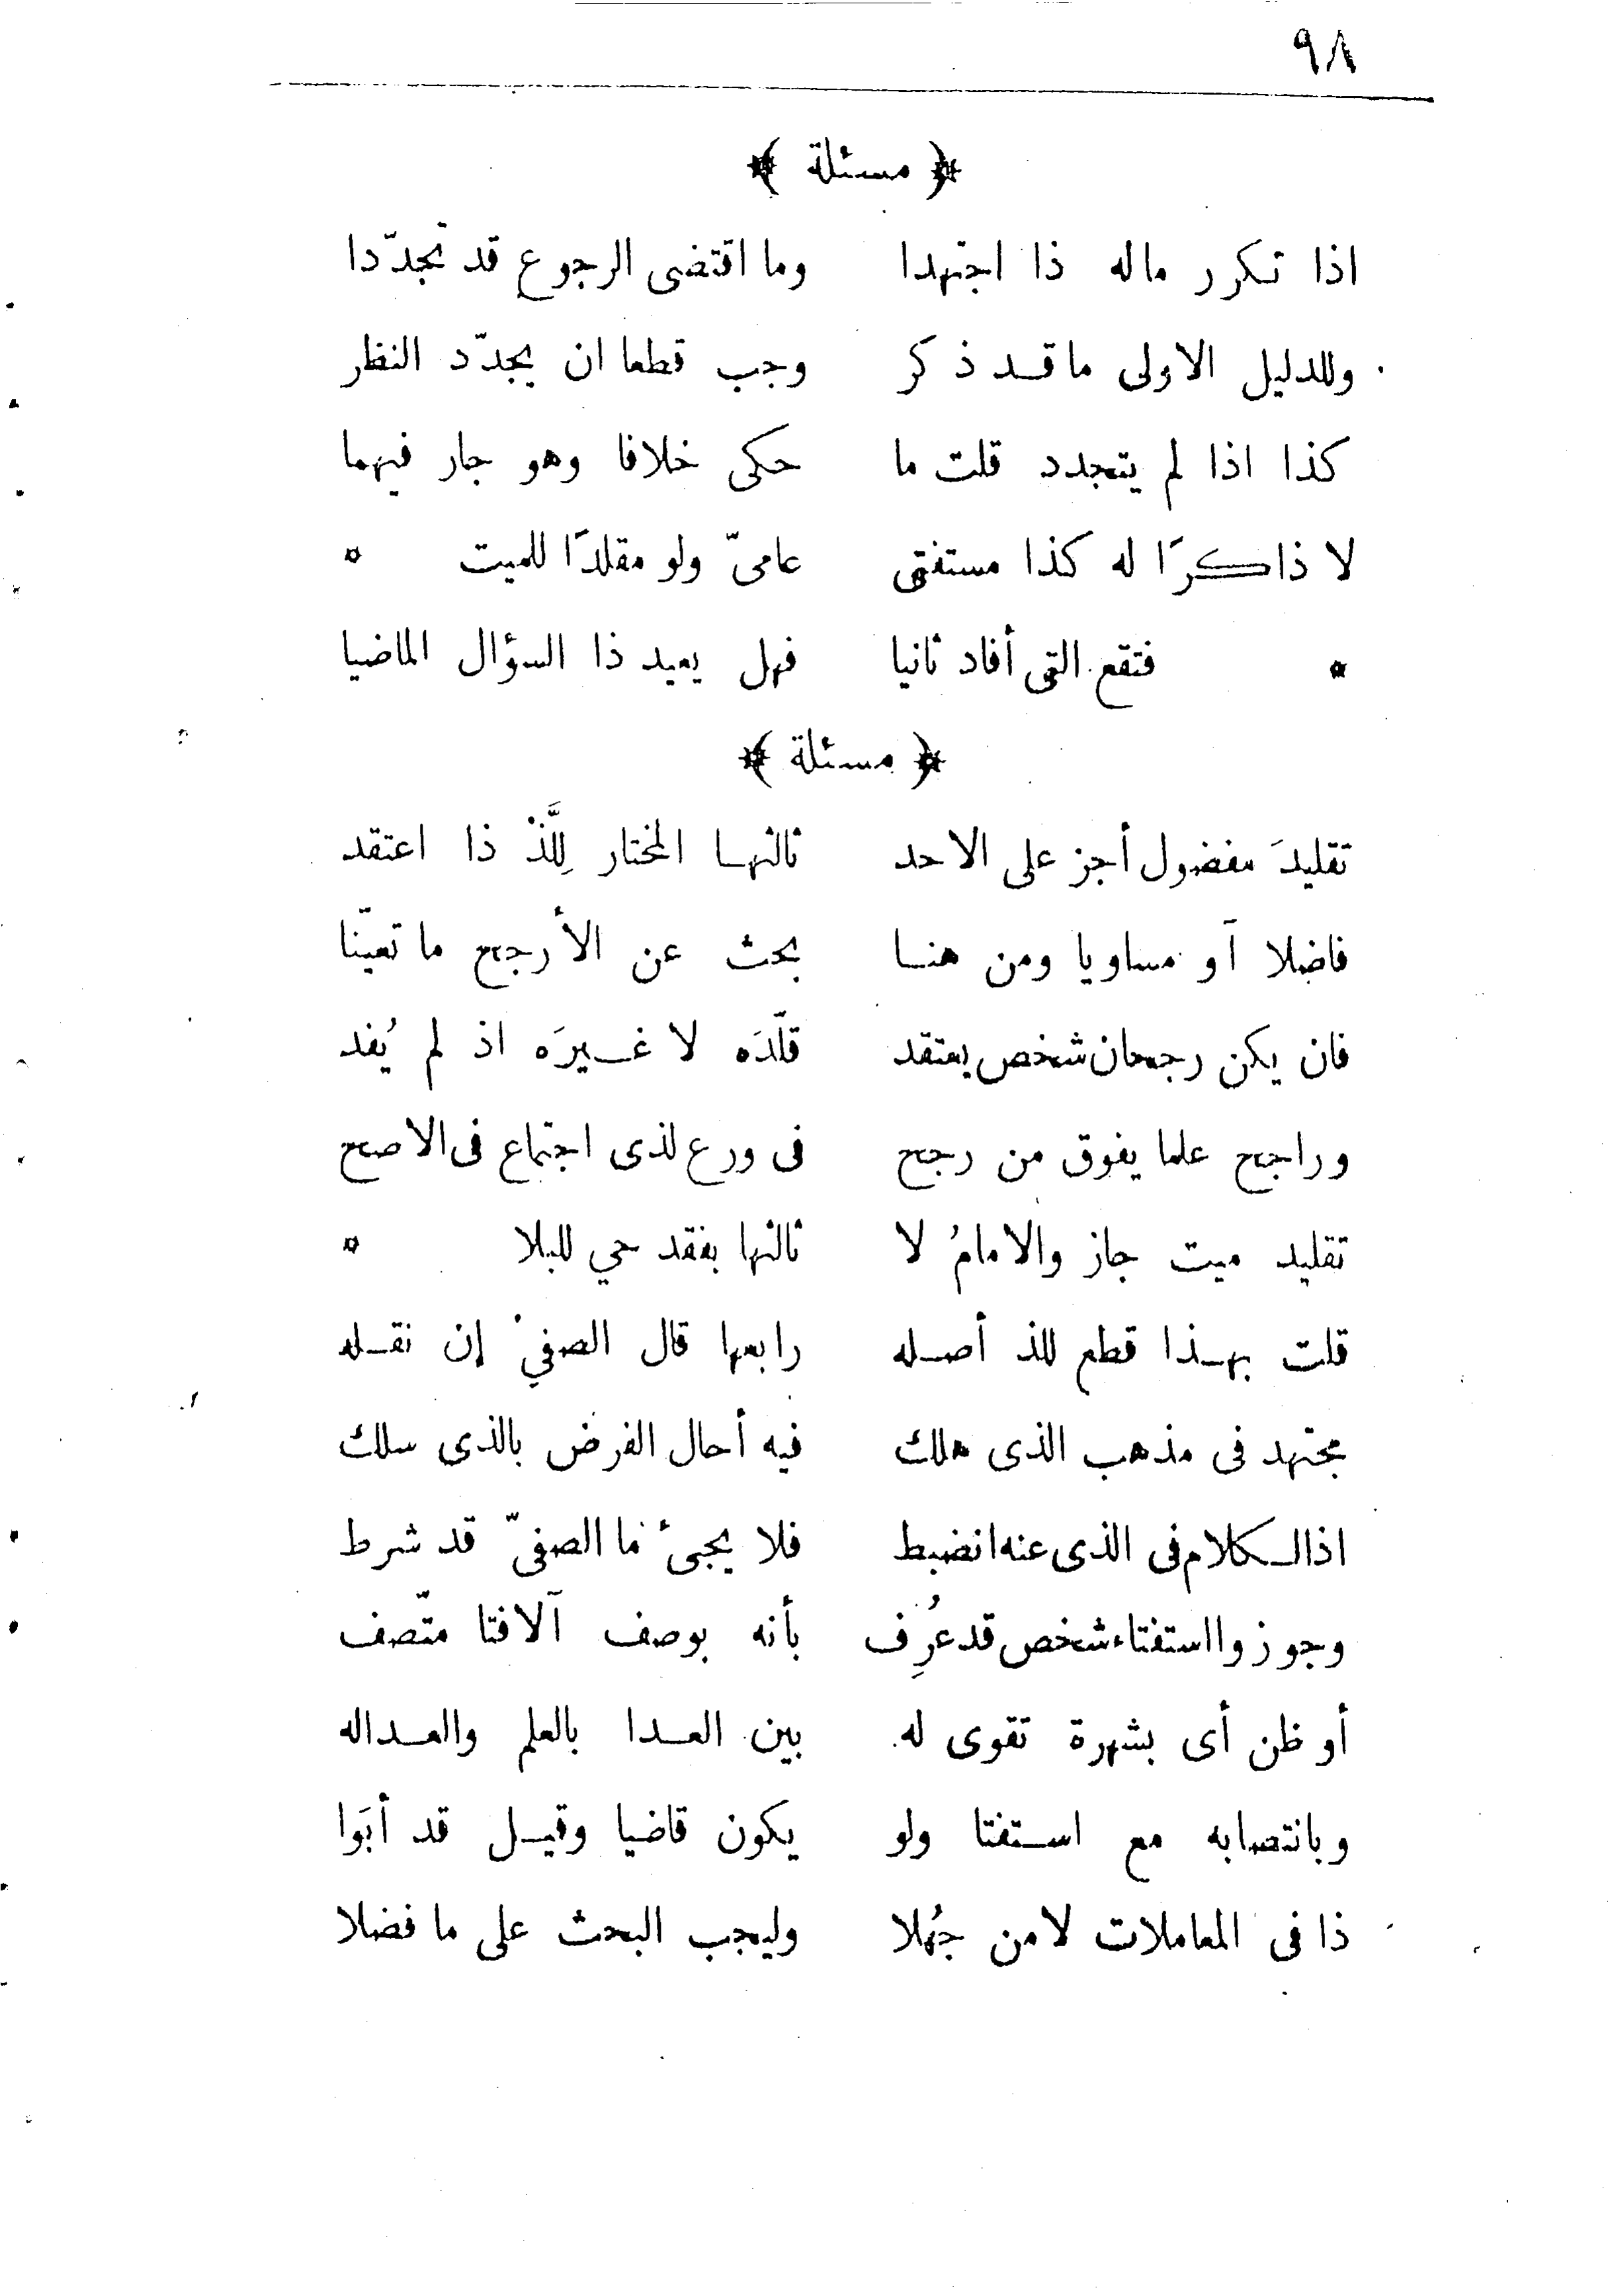 ٩٨
﴿ مسئلة ﴾
اذا تكرر ماله ذا اجتهدا وما اقتضى الرجوع قد تجدّدا
وللدليل الاولى ما قد ذكر وجب قطعا ان يجدّد النظر
كذا اذا لم يتجدد قلت ما حكى خلافا وهو جار فيهما
لا ذاكرًا له كذا مستفتى عامىّ ولو مقلدًا للميت *
* فتقع التى أفاد ثانيا فهل يعيد ذا السؤال الماضيا
﴿ مسئلة ﴾
تقليدَ مفضول أجز على الاحد ثالثها المختار لِلَّذْ ذا اعتقد
فاضلا أو مساويا ومن هنا بحث عن الأرجح ما تعيّنا
فان يكن رجحان شخص يعتقد قلّدَه لا غيرَه اذ لم يُفد
وراجح علما يفوق من رجح فى ورع لذى اجتماع فى الاصح
تقليد ميت جاز والامامُ لا ثالثها بفقد حي للبلا *
قلت بهذا قطع للذ أصله رابعها قال الصفيْ إن نقله
مجتهد فى مذهب الذى هلك فيه أحال الفرض بالذى سلك
اذا الكلام فى الذى عنه انضبط فلا يجئ ما الصفىّ قد شرط
وجوزوا استفتاء شخص قد عُرِف بأنه بوصف آلافتا متّصف
أو ظن أى بشهرة تقوى له بين العدا بالعلم والعداله
وبانتصابه مع استفتا ولو يكون قاضيا وقيل قد أبَوا
ذا فى المعاملات لا من جُهلا وليجب البحث على ما فضلا